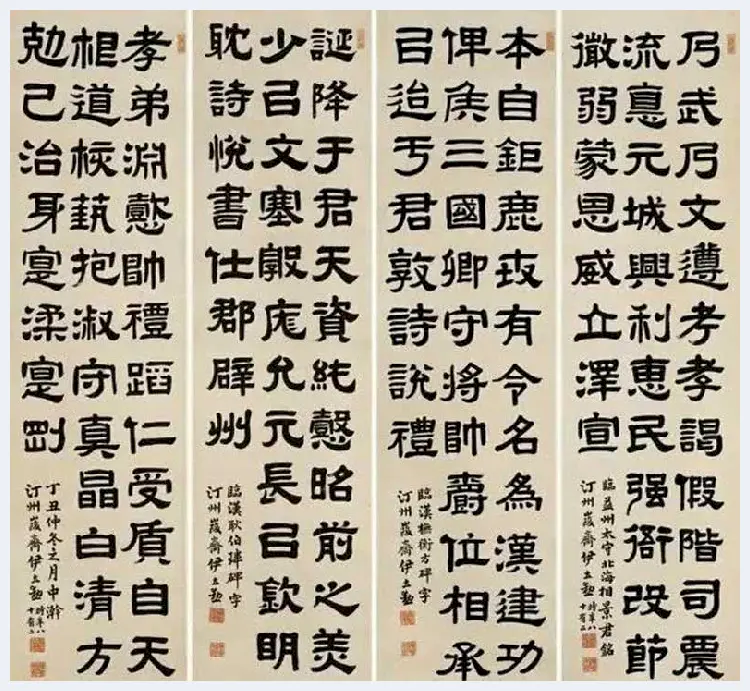 乃武乃文遵考孝謁假階司農
流惪元城興利惠民强衙改節
徽弱蒙恩威立澤宣
臨益州太守北海相景君銘
汀州峻齋伊立勳時年八十有二
本自鉅鹿世有令名為漢建功
俾侯三國卿守將帥爵位相承
㠯迨于君敦詩説禮
臨漢衡方碑字
汀州峻齋伊立勳
誕降于君天資純懿昭前之美
少㠯文塞敦庬允元長㠯欽明
耽詩悅書仕郡辟州
臨漢耿伯瑋碑字
汀州峻齋伊立勳
孝弟淵懿帥禮蹈仁受質自天
相道核藝抱淑守真晶白清方
剋己治身寔柔寔剛
丁丑仲冬之月中澣
汀州峻齋伊立勳時年八十有二